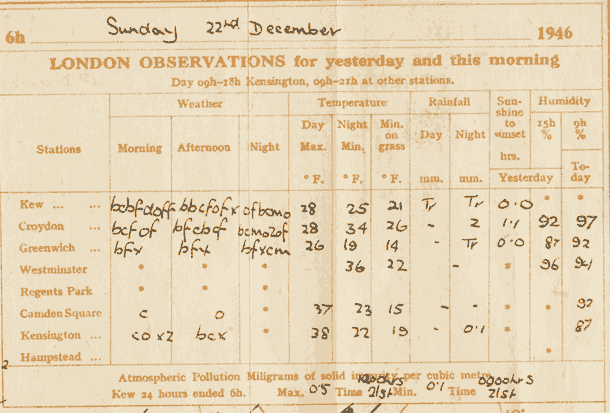 6h Sunday 22nd December 1946
LONDON OBSERVATIONS for yesterday and this morning
Day 09h-18h Kensington, 09h-21h at other stations.
Stations Weather Temperature Rainfall Sunshine to sunset Humidity
Morning Afternoon Night Day Max. Night Min. Min. on grass Day Night hrs. 15h % 9h %
° F. ° F. ° F. mm. mm. Yesterday To-day
Kew ... ... 28 25 21 Tr Tr 0.0 * *
Croydon ... bcfof bfcbcf 28 34 26 - 2 1.1 92 97
Greenwich ... bfx bfx bfxcm 26 19 14 - Tr 0.0 87 92
Westminster * * * 36 22 - * 96 94
Regents Park * * *
Camden Square c o * 37 23 15 - - * * 92
Kensington ... bcx * 38 22 19 - 0.1 * 87
Hampstead ... *
Atmospheric Pollution Miligrams of solid impurity per cubic metre
Kew 24 hours ended 6h. Max. 0.5 Time 21st Min. 0.1 Time 0900hrs 21st